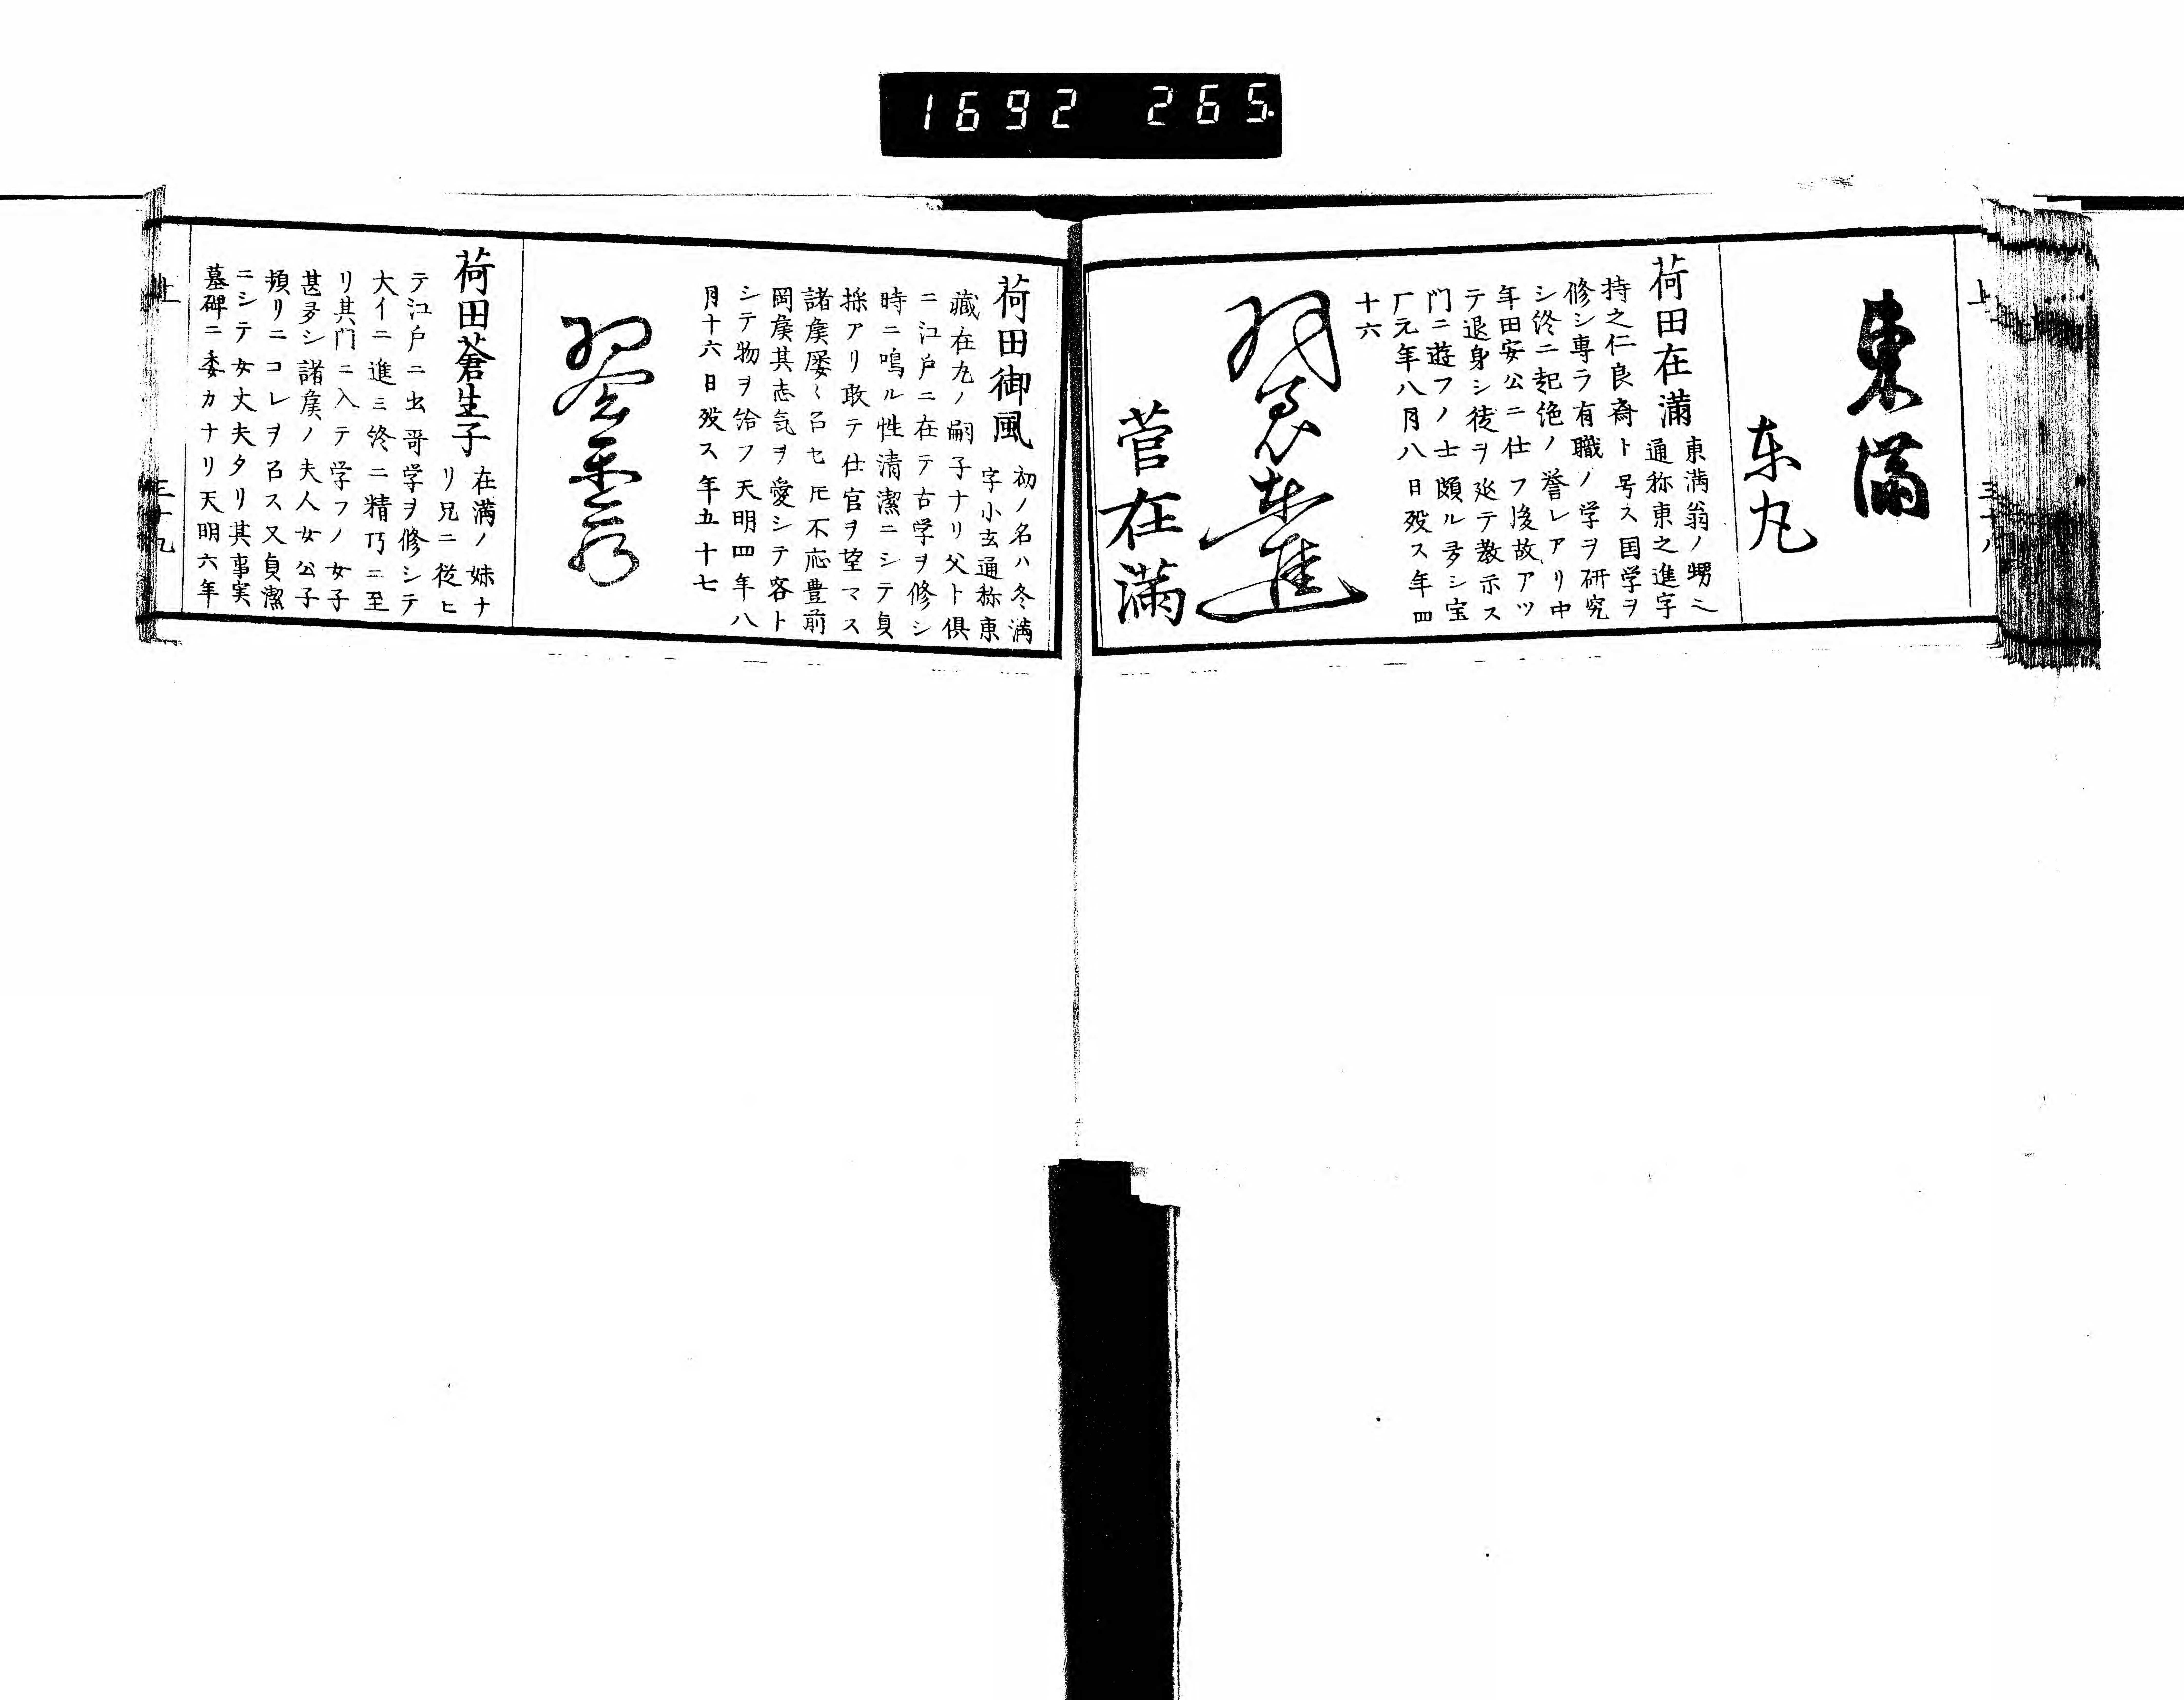 1692 265
上
三十八
東滿
东丸
荷田在滿
東満翁ノ甥ニ
通称東之進字
持之仁良斎ト号ス国学ヲ
修シ専ラ有職ノ学ヲ研究
シ終ニ起絶ノ誉レアリ中
年田安公ニ仕フ後故アツ
テ退身シ徒ヲ延テ教示ス
门ニ遊フノ士頗ル多シ宝
厂元年八月八日殁ス年四
十六
菅在滿
荷田御風
初ノ名ハ冬満
字小玄通称東
藏在九ノ嗣子ナリ父ト倶
ニ江戸ニ在テ古学ヲ修シ
時ニ鳴ル性清潔ニシテ貞
操アリ敢テ仕官ヲ望マス
諸矦屡〻召セ𪜈不応豊前
岡矦其志気ヲ愛シテ客ト
シテ物ヲ給フ天明四年八
月十六日殁ス年五十七
荷田蒼生子
在満ノ妹ナ
リ兄ニ従ヒ
テ江戸ニ出哥学ヲ修シテ
大イニ進ミ終ニ精巧ニ至
リ其门ニ入テ学フノ女子
甚多シ諸矦ノ夫人女公子
頻リニコレヲ召ス又貞潔
ニシテ女丈夫タリ其事実
墓碑ニ委カナリ天明六年
上
三十九